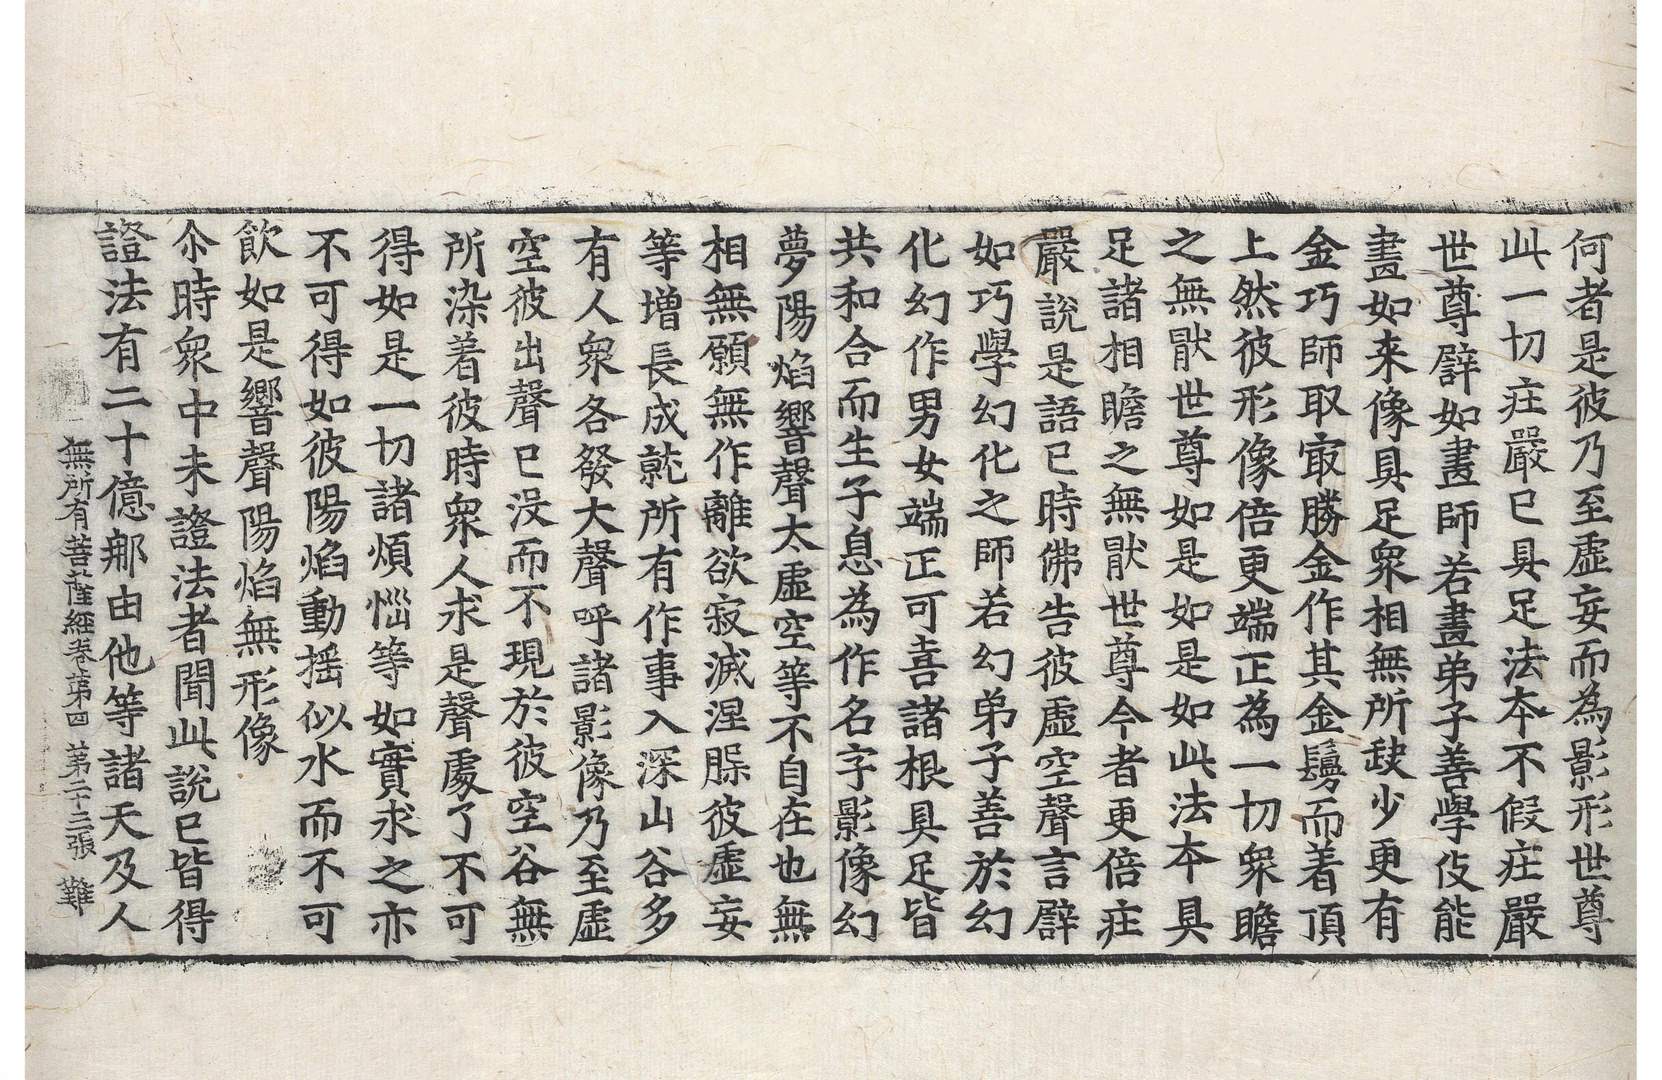 何者是彼乃至虛妄而為影形世尊
此一切庄嚴已具足法夲不假庄嚴
世尊譬如畫師若畫弟子善學伎能
畫如来像具足衆相無所缺少更有
金巧師取㝡勝金作其金鬘而著頂
上然彼形像倍更端正為一切衆瞻
之無猒世尊如是如是如此法夲具
足諸相瞻之無猒世尊今者更倍庄
嚴說是語已時佛告彼虛空聲言譬
如巧學幻化之師若幻弟子善於幻
化幻作男女端正可喜諸根具足皆
共和合而生子息為作名字影像幻
夢陽焰響聲太虛空等不自在也無
相無願無作離欲寂滅涅槃彼虛妄
等增長成就所有作事入深山谷多
有人衆各發大聲呼諸影像乃至虛
空彼出聲已没而不現於彼空谷無
所染着彼時衆人求是聲處了不可
得如是一切諸煩惱等如實求之亦
不可得如彼陽焰動摇似水而不可
飲如是響聲陽焰無形像
尒時衆中未證法者聞此說已皆得
證法有二十億那由他等諸天及人
無所有菩薩經卷第四 第二十三張 難